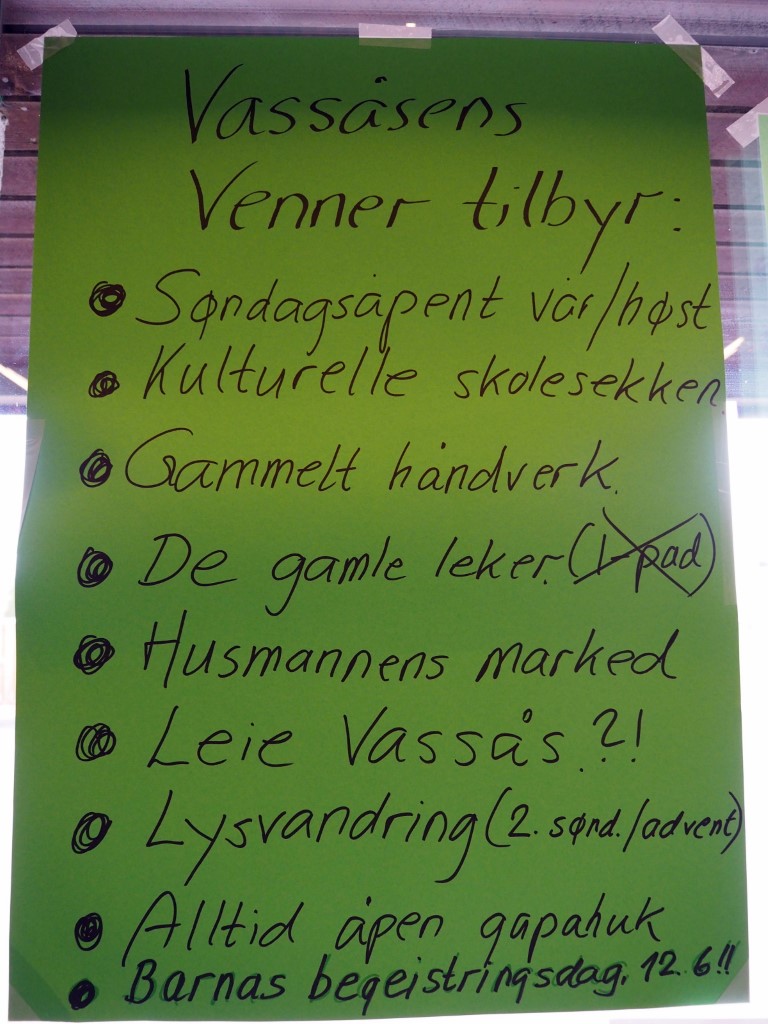 Vassåsens
Venner tilbyr:
Søndagsåpent vår/høst
Kulturelle skolesekken.
Gammelt håndverk.
De gamle leker. (I-pad)
Husmannens marked
Leie Vassås.?!
Lysvandring (2. sønd./advent)
Alltid åpen gapahuk
Barnas begeistringsdag. 12.6!!